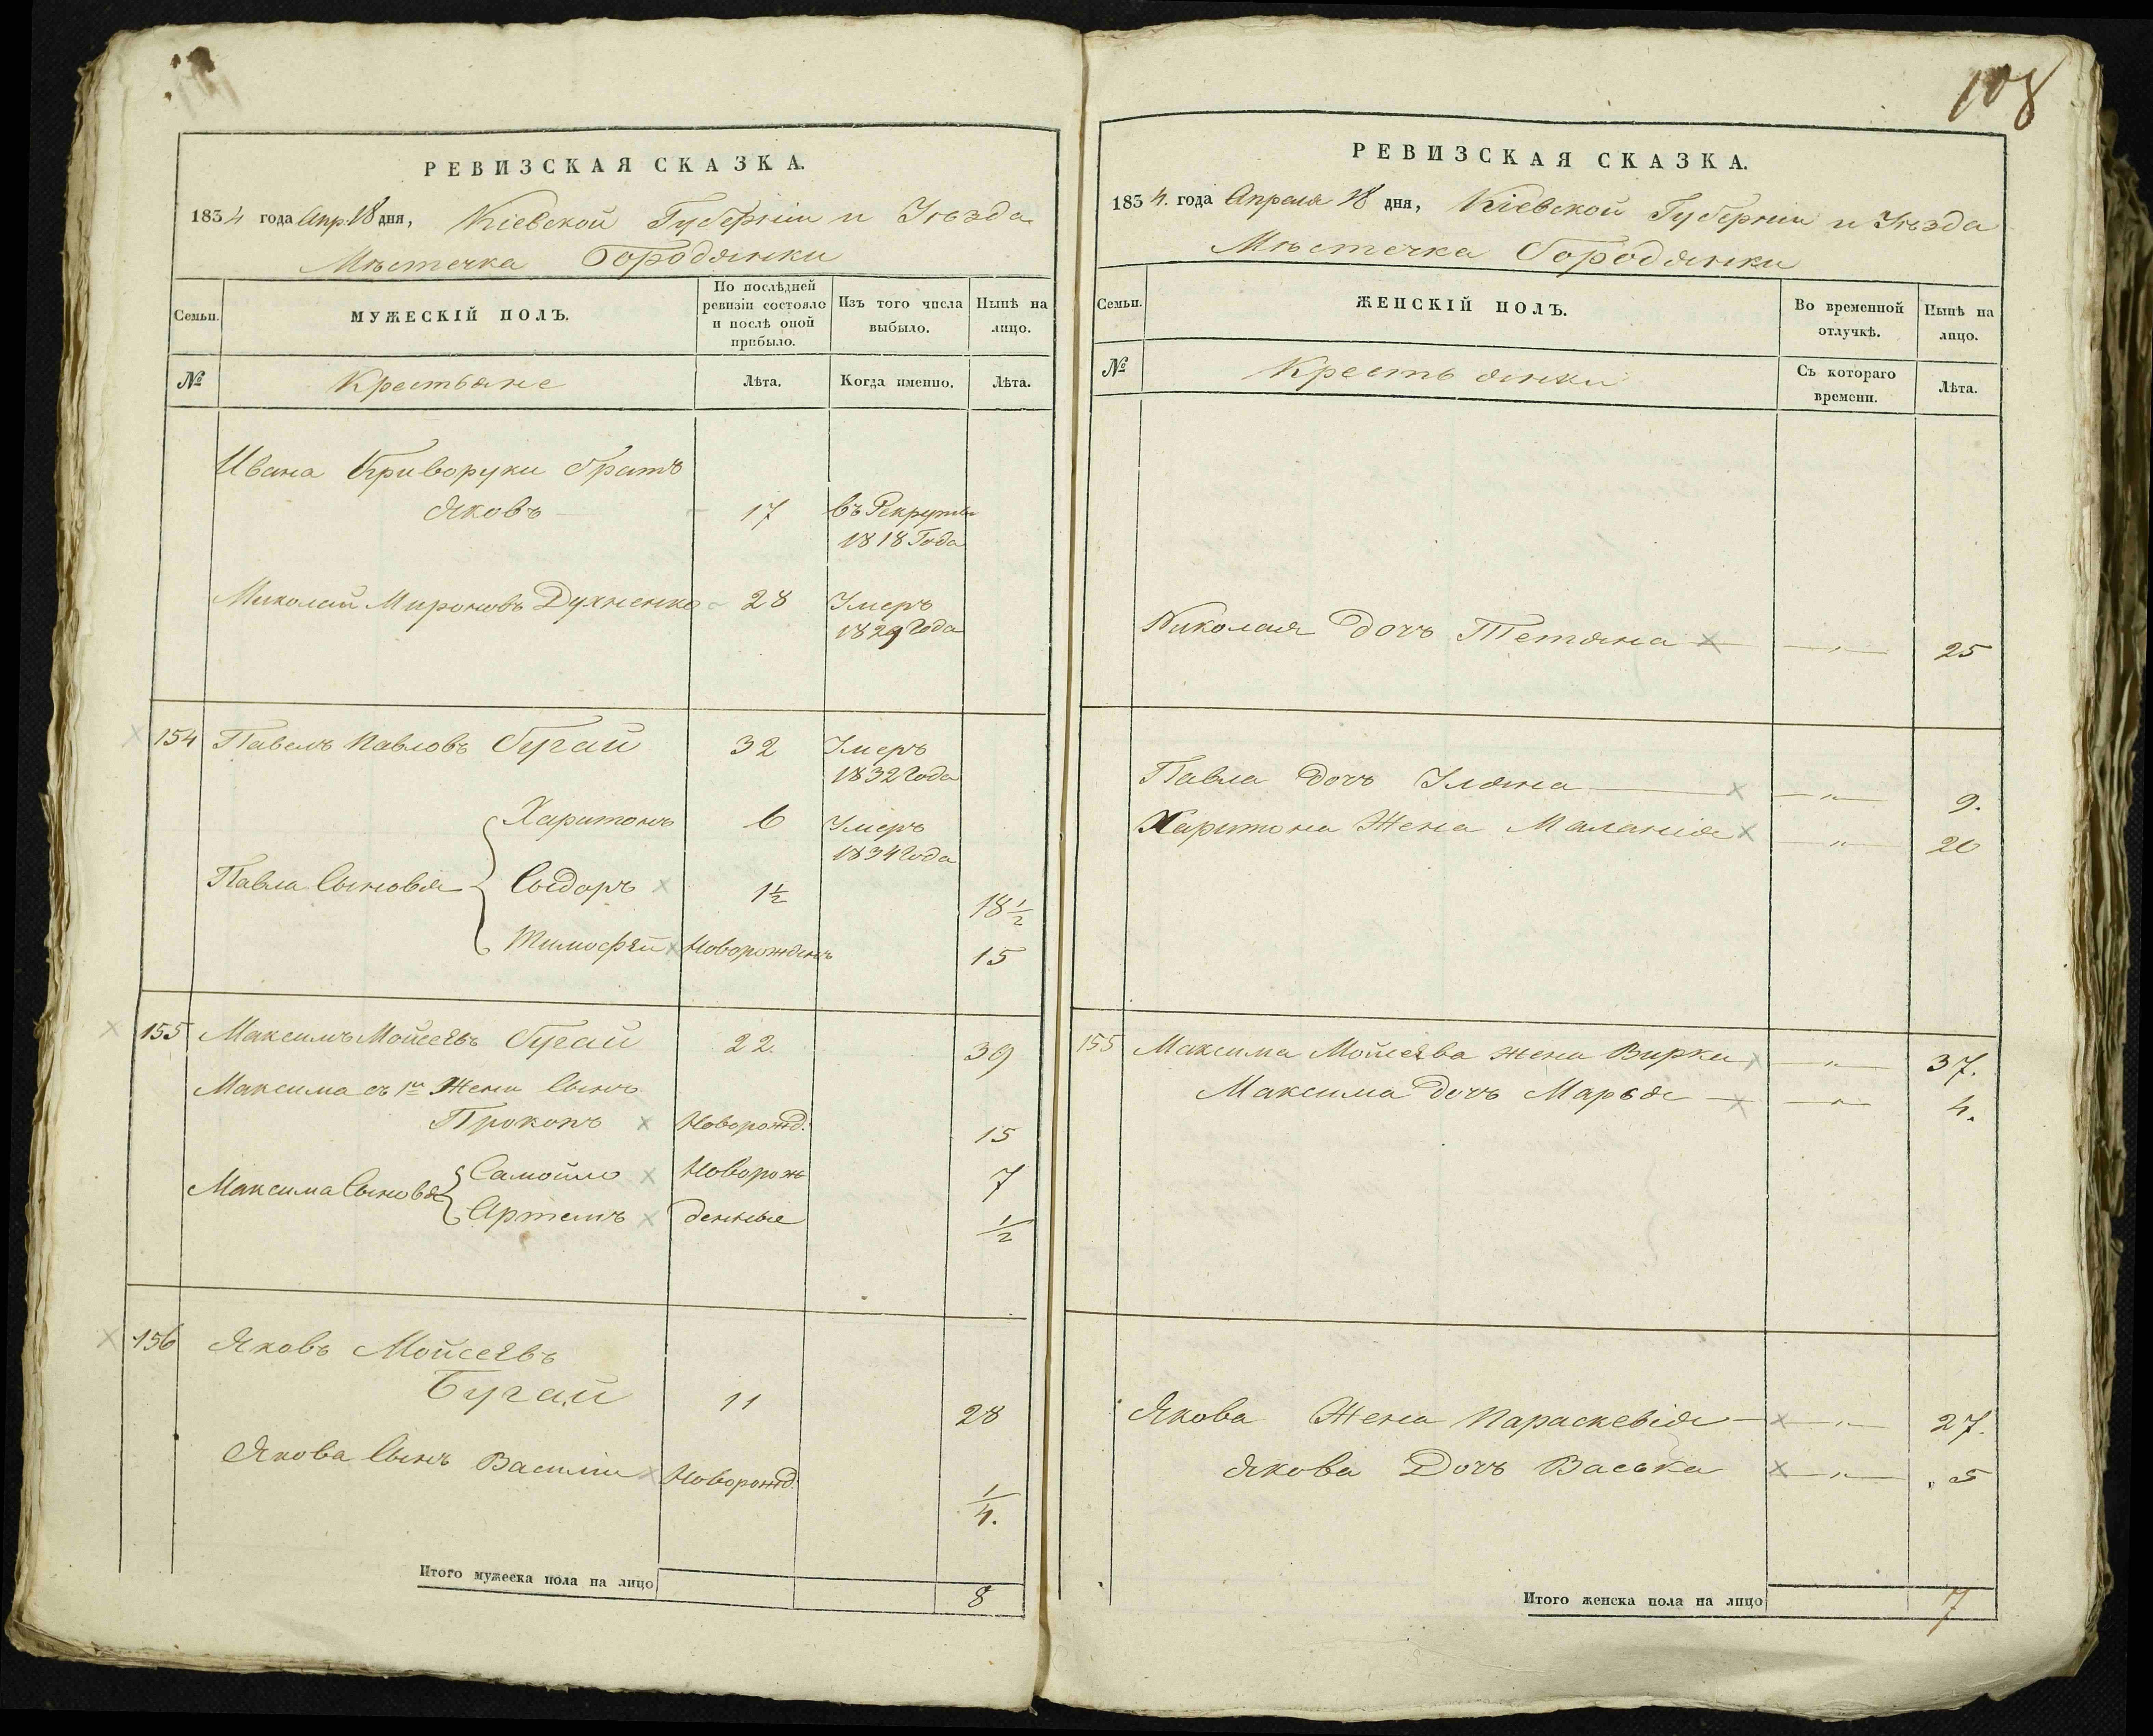 108
РЕВИЗСКАЯ СКАЗКА.
1834 года Апр. 18 дня, Кіевской Губерніи и Уѣзда
Мѣстечка Бородянки
Семьи.
МУЖЕСКІЙ ПОЛЪ.
По послѣдней ревизіи состояло и послѣ оной прибыло.
Изъ того числа выбыло.
Нынѣ на лицо.
№
Крестьяне
Лѣта.
Когда именно.
Лѣта.
Ивана Криворуки братъ
Яковъ 17 въ Рекруты
1818 Года
Миколай Мироновъ Духненко 28 Умеръ
1829 Года
154 Павелъ Павловъ Бугай 32 Умеръ
1832 Года
Харитонъ 6 Умеръ
1834 Года
Павла Сыновья Сыдоръ 1½ 18½
Тимофѣй Новорожденъ 15
155 Максимъ Мойсеѣвъ Бугай 22. 39
Максима съ 1й Жены Сынъ
Прокопъ Новорожд. 15
Максима Сыновья Самойло Новорож 7
Артемъ денные ½
156 Яковъ Мойсеѣвъ
Бугай 11 28
Якова Сынъ Василій Новорожд. ¼.
Итого мужеска пола на лицо 8
РЕВИЗСКАЯ СКАЗКА.
1834. года Апреля 18 дня, Кіевской Губерніи и Уѣзда
Мѣстечка Бородянки
Семьи.
ЖЕНСКІЙ ПОЛЪ.
Во временной отлучкѣ.
Нынѣ на лицо.
№
Крестьянки
Съ котораго времени.
Лѣта.
Николая Дочъ Тетяна — " — 25
Павла Дочъ Уляна — " — 9.
Харитона Жена Маланія — " — 20
155 Максима Мойсеѣва жена Вирка — " — 37.
Максима Дочъ Марья — " — 4.
Якова Жена Параскевія — " — 27.
Якова Дочъ Васька — " — 5
Итого женска пола на лицо 7